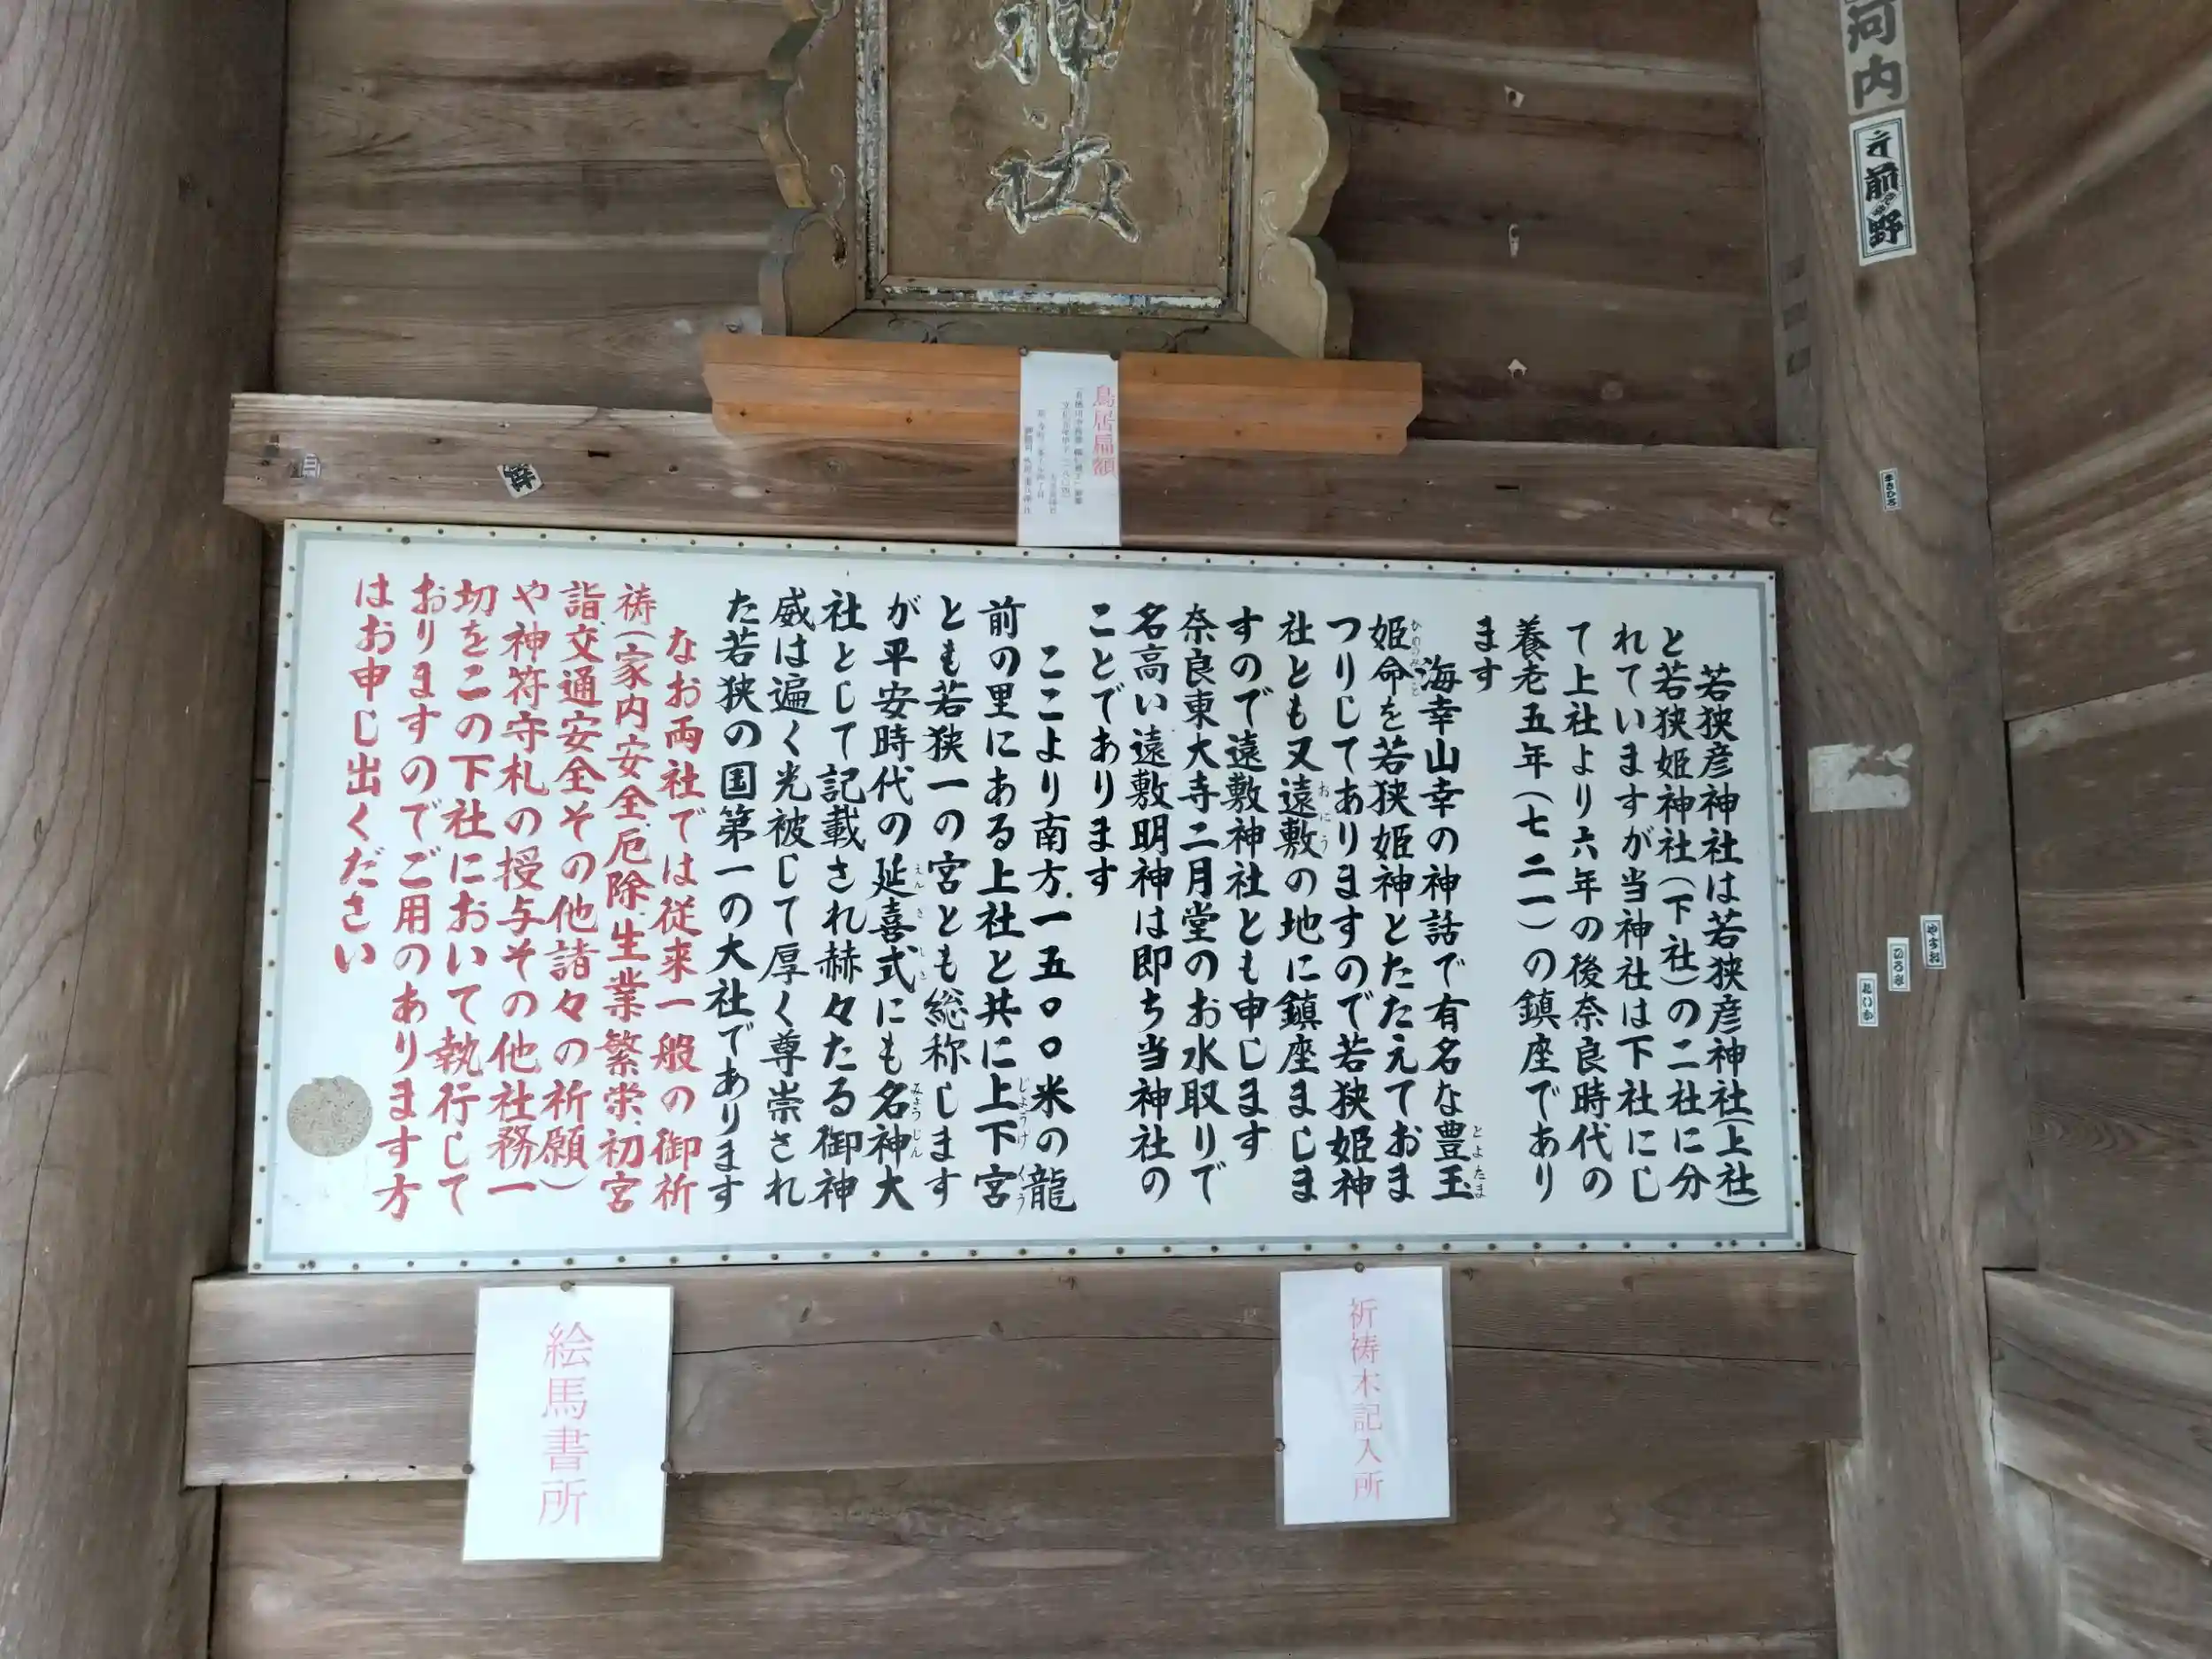 神社
鳥居扁額
若狭彦神社は若狭彦神社(上社)
と若狭姫神社(下社)の二社に分
れていますが当神社は下社にし
て上社より六年の後奈良時代の
養老五年(七二一)の鎮座であり
ます
海幸山幸の神話で有名な豊玉
とよたま
姫命を若狭姫神とたたえておま
ひめのみこと
つりしてありますので若狭姫神
社とも又遠敷の地に鎮座ましま
おにう
すので遠敷神社とも申します
奈良東大寺二月堂のお水取りで
名高い遠敷明神は即ち当神社の
ことであります
ここより南方、一五〇〇米の龍
前の里にある上社と共に上下宮
じょうげぐう
とも若狭一の宮とも総称します
が平安時代の延喜式にも名神大
えんぎしき みょうじん
社として記載され赫々たる御神
威は遍く光被して厚く尊崇され
た若狭の国第一の大社であります
なお両社では従来一般の御祈
祷(家内安全、厄除、生業繁栄、初宮
詣、交通安全その他諸々の祈願)
や神符守札の授与その他社務一
切をこの下社において執行して
おりますのでご用のあります方
はお申し出ください
祈祷木記入所
絵馬書所
河内
前野